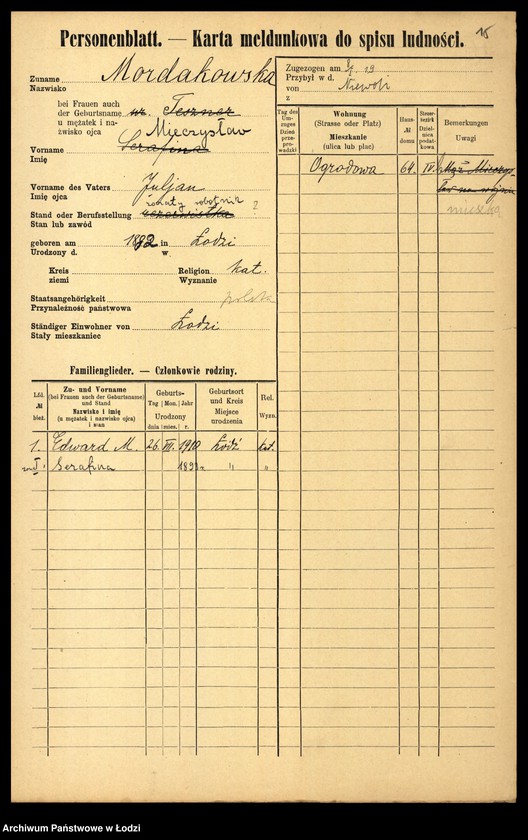 15
Personenblatt. — Karta meldunkowa do spisu ludności.
Zuname Mordakowska
Nazwisko
bei Frauen auch
der Geburtsname ur. Teszner
u mężatek i na-
zwisko ojca Mieczysław
Vorname Serafina
Imię
Vorname des Vaters Juljan
Imię ojca
żonaty robotnik ?
Stand oder Berufsstellung
Stan lub zawód
geboren am 1892 in Łodzi
Urodzony d. w.
Kreis Religion kat.
ziemi Wyznanie
Staatsangehörigkeit polska
Przynależność państwowa
Ständiger Einwohner von Łodzi
Stały mieszkaniec
Familienglieder. — Członkowie rodziny.
Lfd. № bież.
Zu- und Vorname
(bei Frauen auch der Geburtsname)
und Stand
Nazwisko i imię
(u mężatek i nazwisko ojca)
i stan
Geburts-
Tag | Mon. | Jahr
Urodzony
dnia | mies. | r.
Geburtsort
und Kreis
Miejsce
urodzenia
Rel.
Wyzn.
1. Edward M. 26. VII. 1910 Łódź kat.
Serafina 1893 r. " "
Zugezogen am 19
Przybył w d.
von Niewoli
z
Tag des
Um-
zuges
Dzień
prze-
prowadzki
Wohnung
(Strasse oder Platz)
Mieszkanie
(ulica lub plac)
Haus-
№
domu
Steuer-
bezirk
Dzielnica
podat-
kowa
Bemerkungen
Uwagi
Ogrodowa 64. IV. Mąż Mieczys-
ław na wojnie
mieszka
Archiwum Państwowe w Łodzi